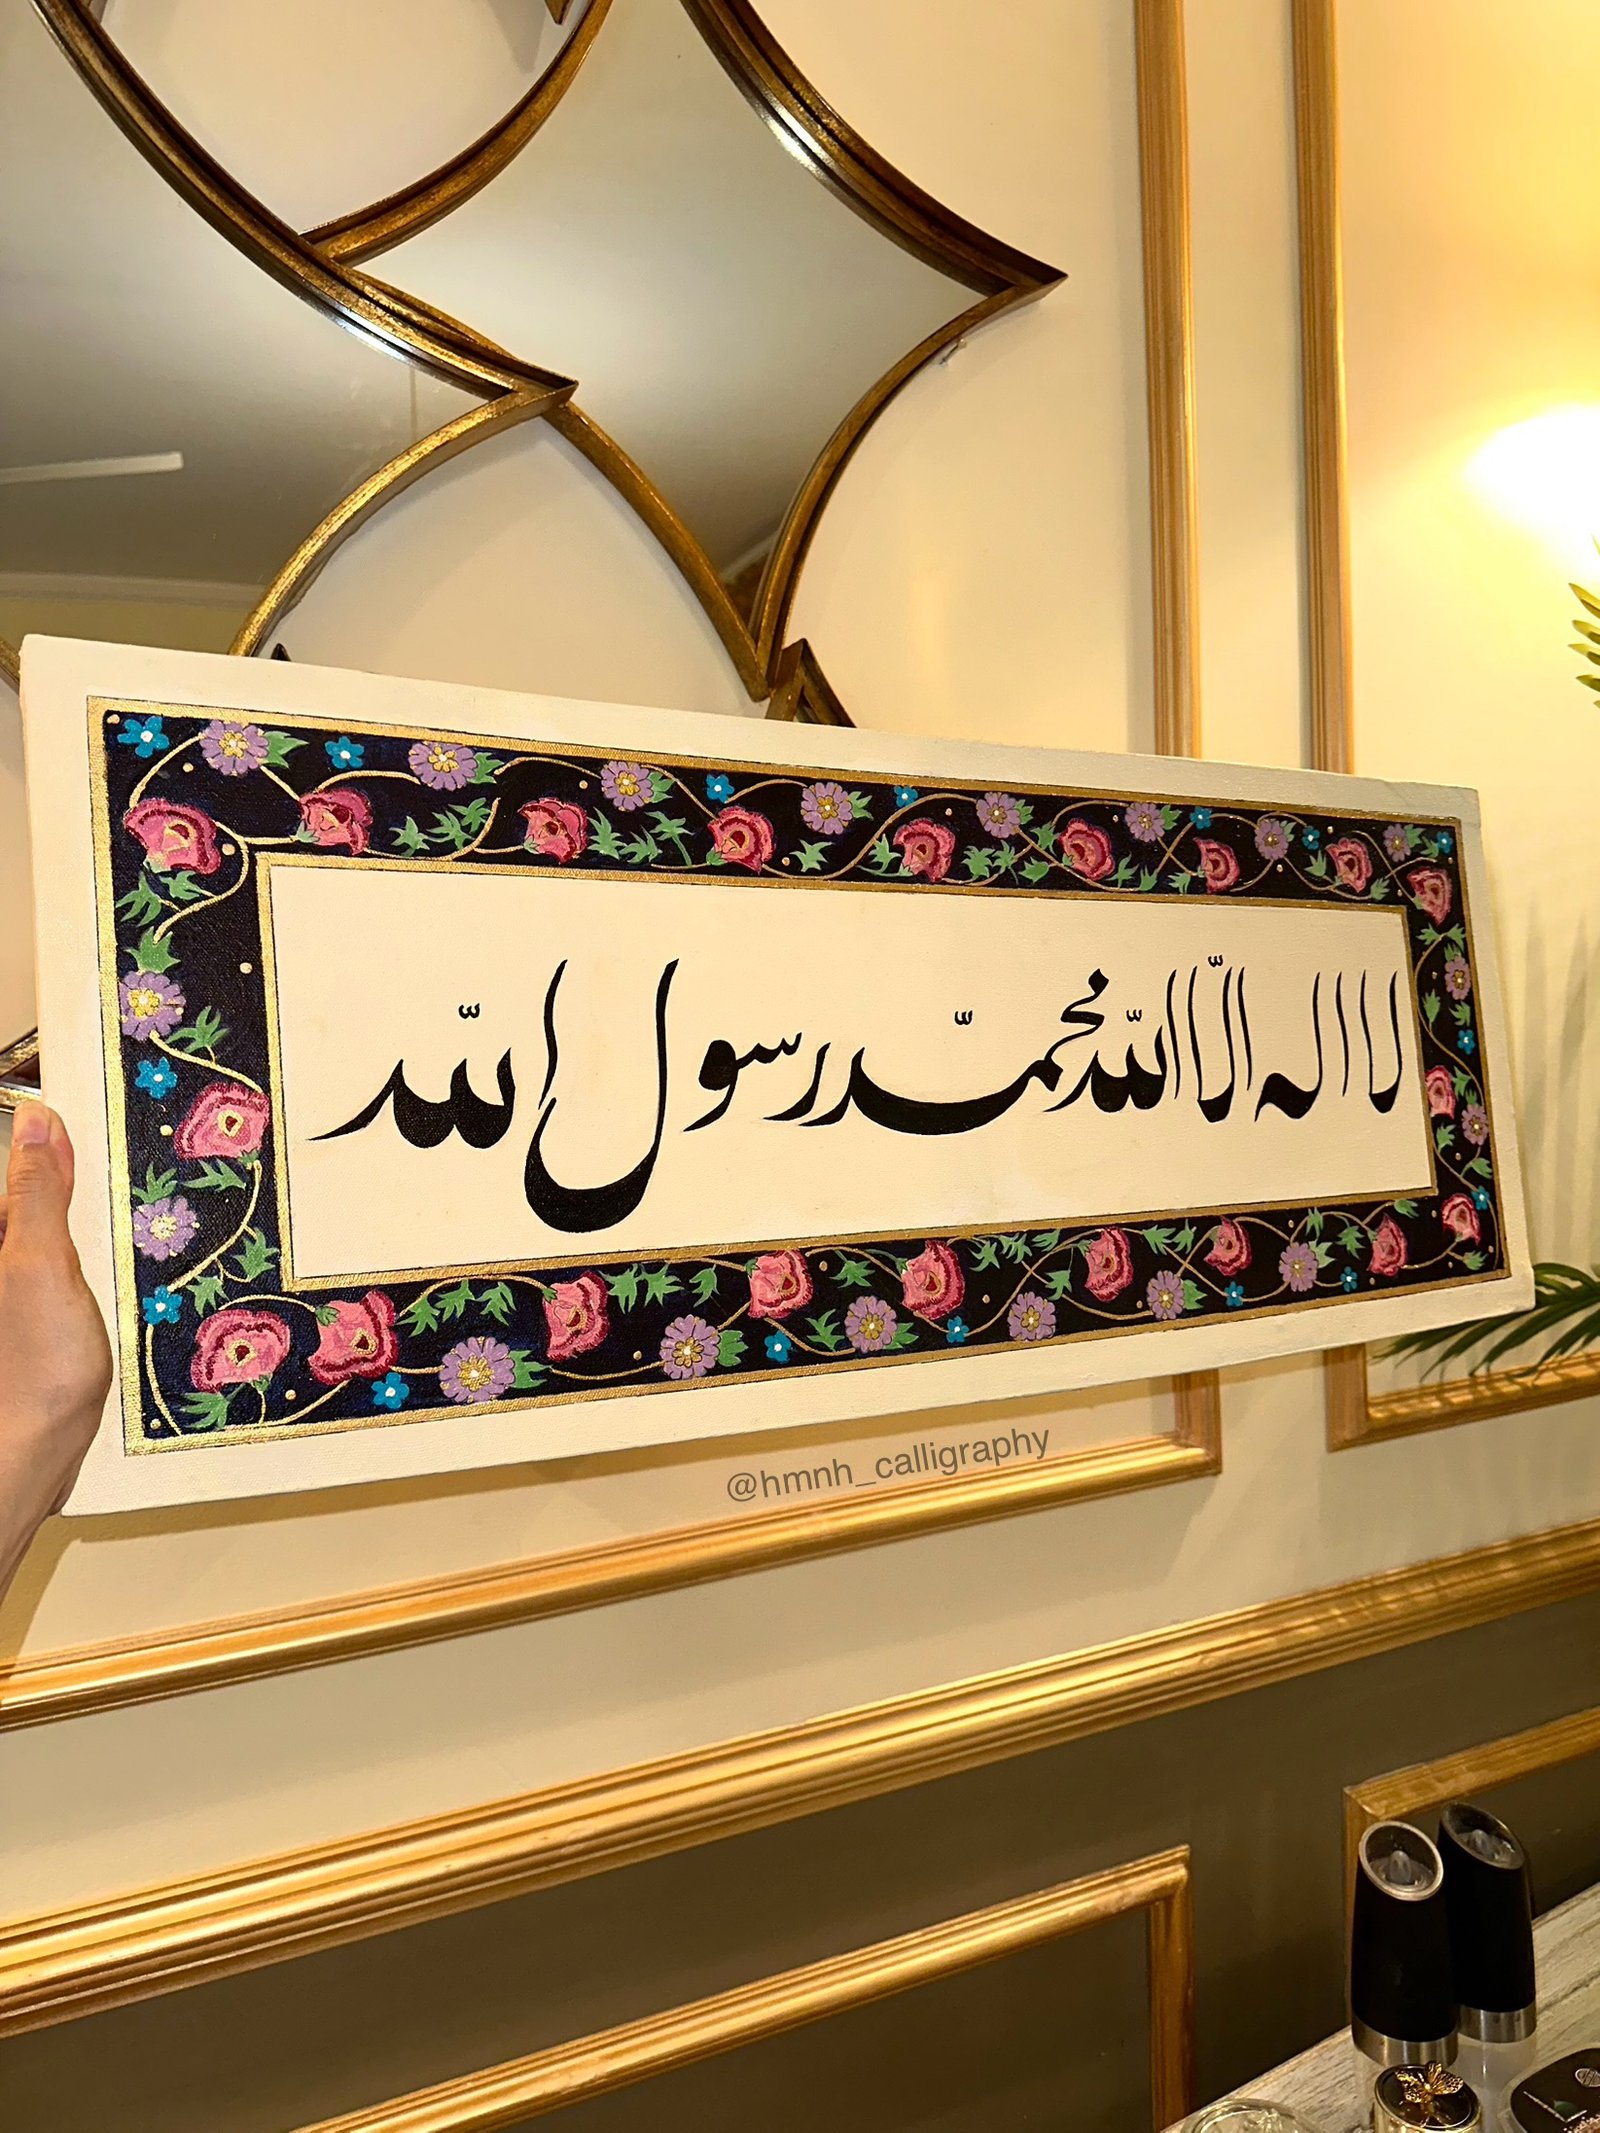 لا اله الّا اللّه محمّد رسول اللّه
@hmnh_calligraphy